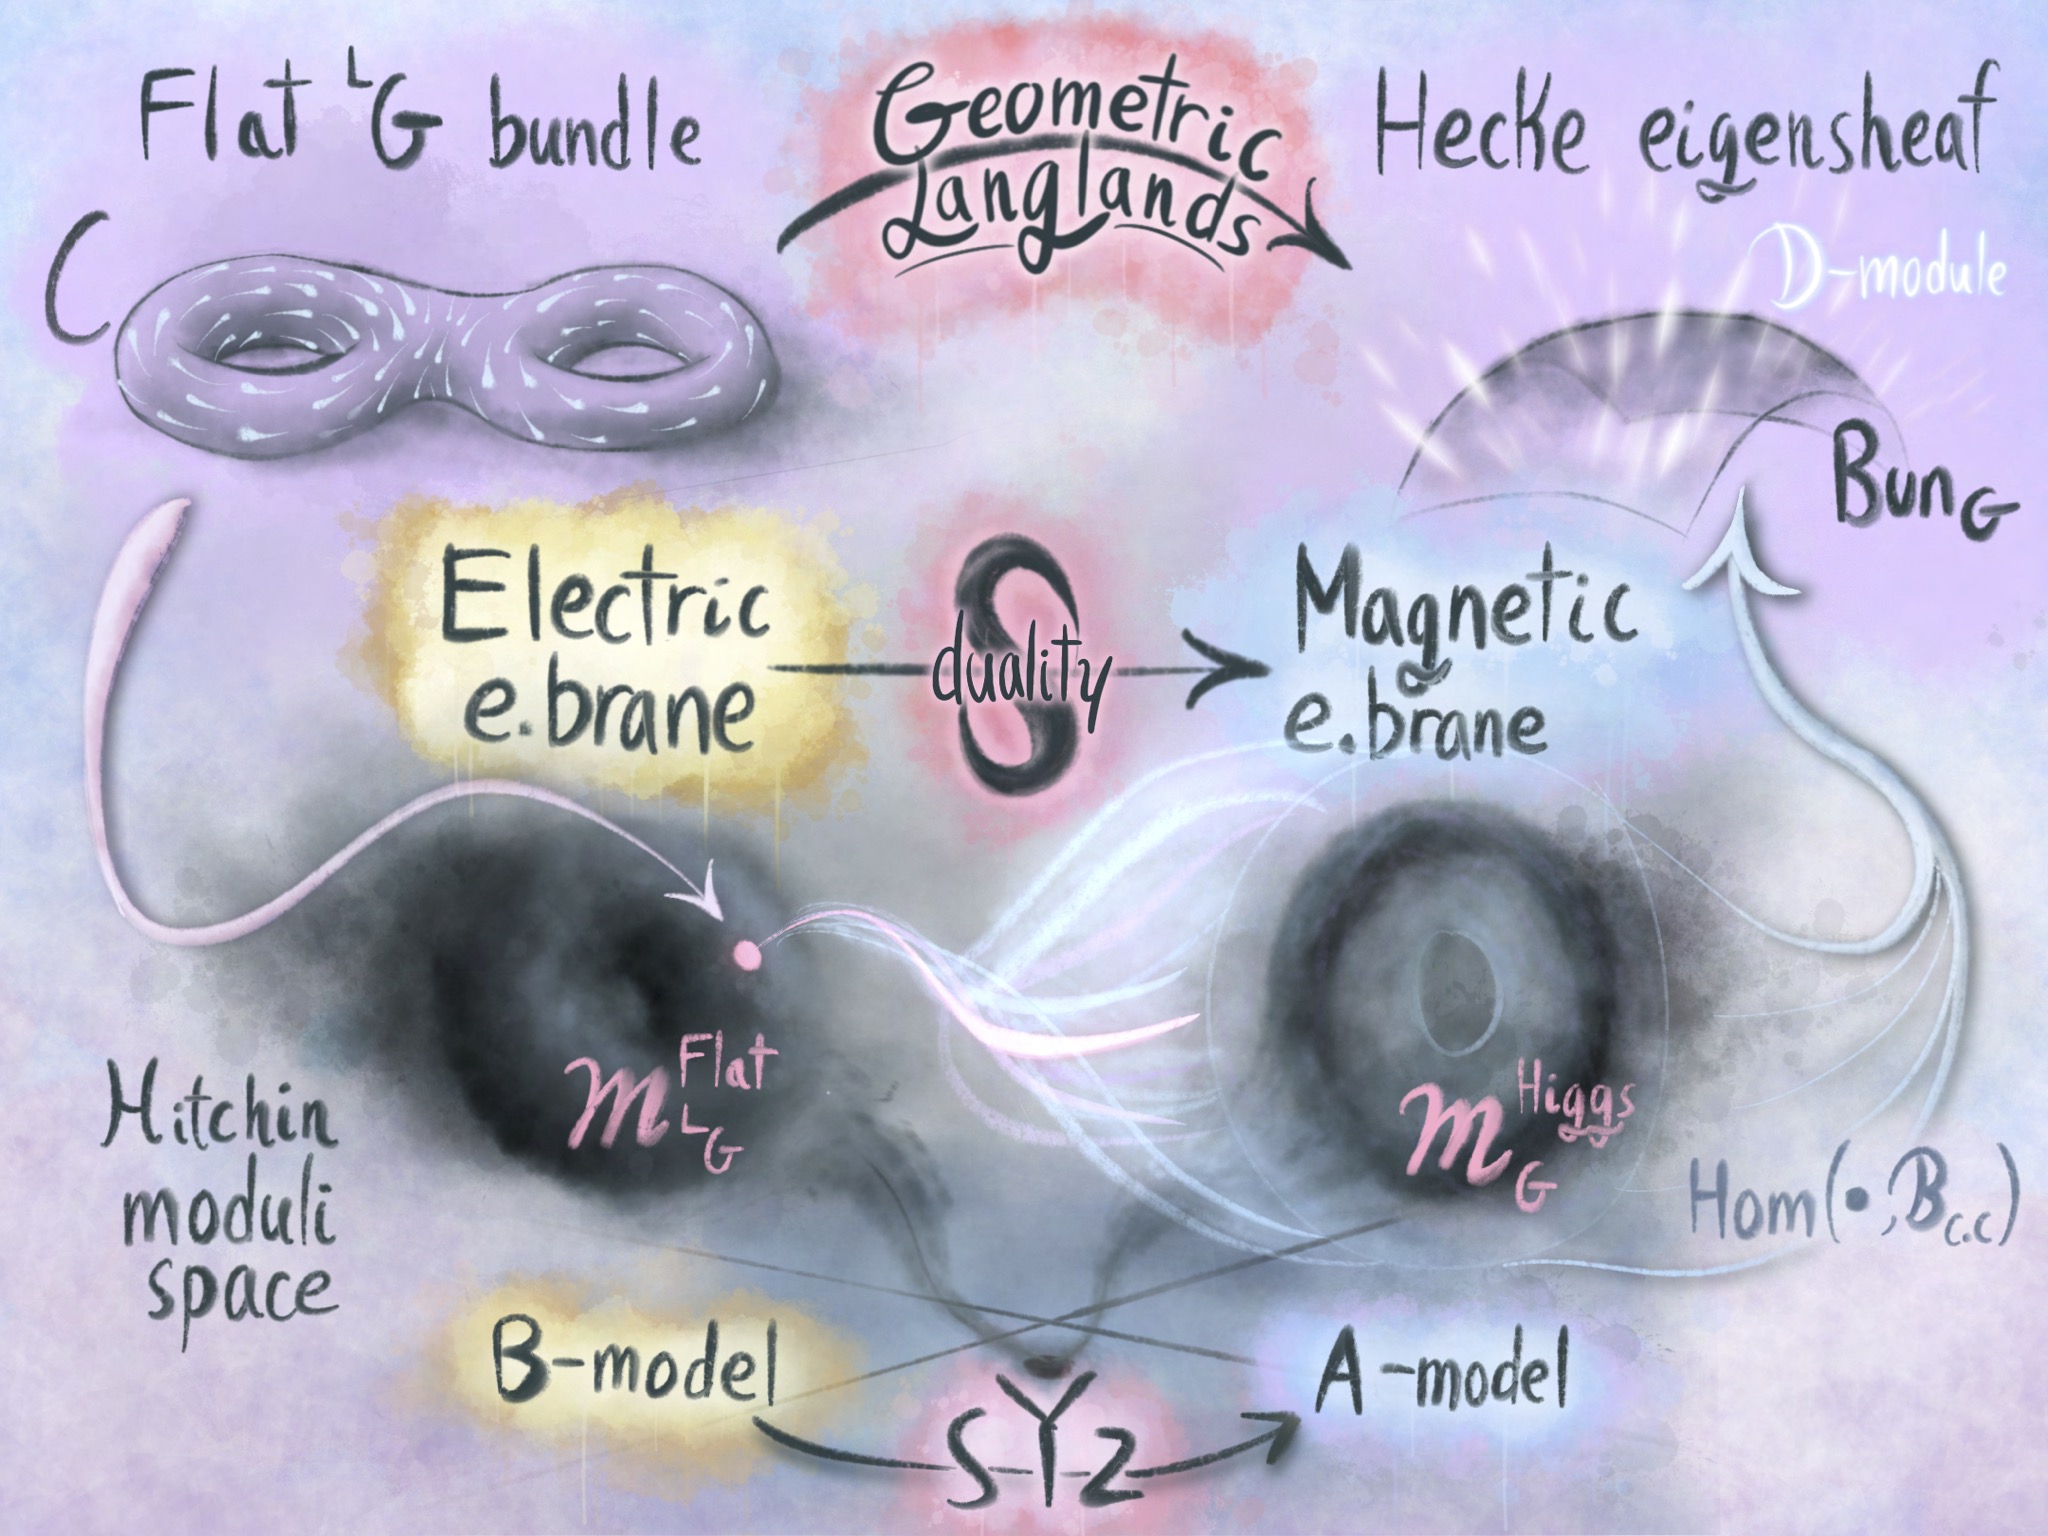 Flat ᴸG bundle
Geometric
Langlands
Hecke eigensheaf
C
D-module
Bun_G
Electric
e.brane
S
duality
Magnetic
e.brane
m^Flat_ᴸG
m^Higgs_G
Hitchin
moduli
space
Hom(•,B_c.c)
B-model
SYZ
A-model